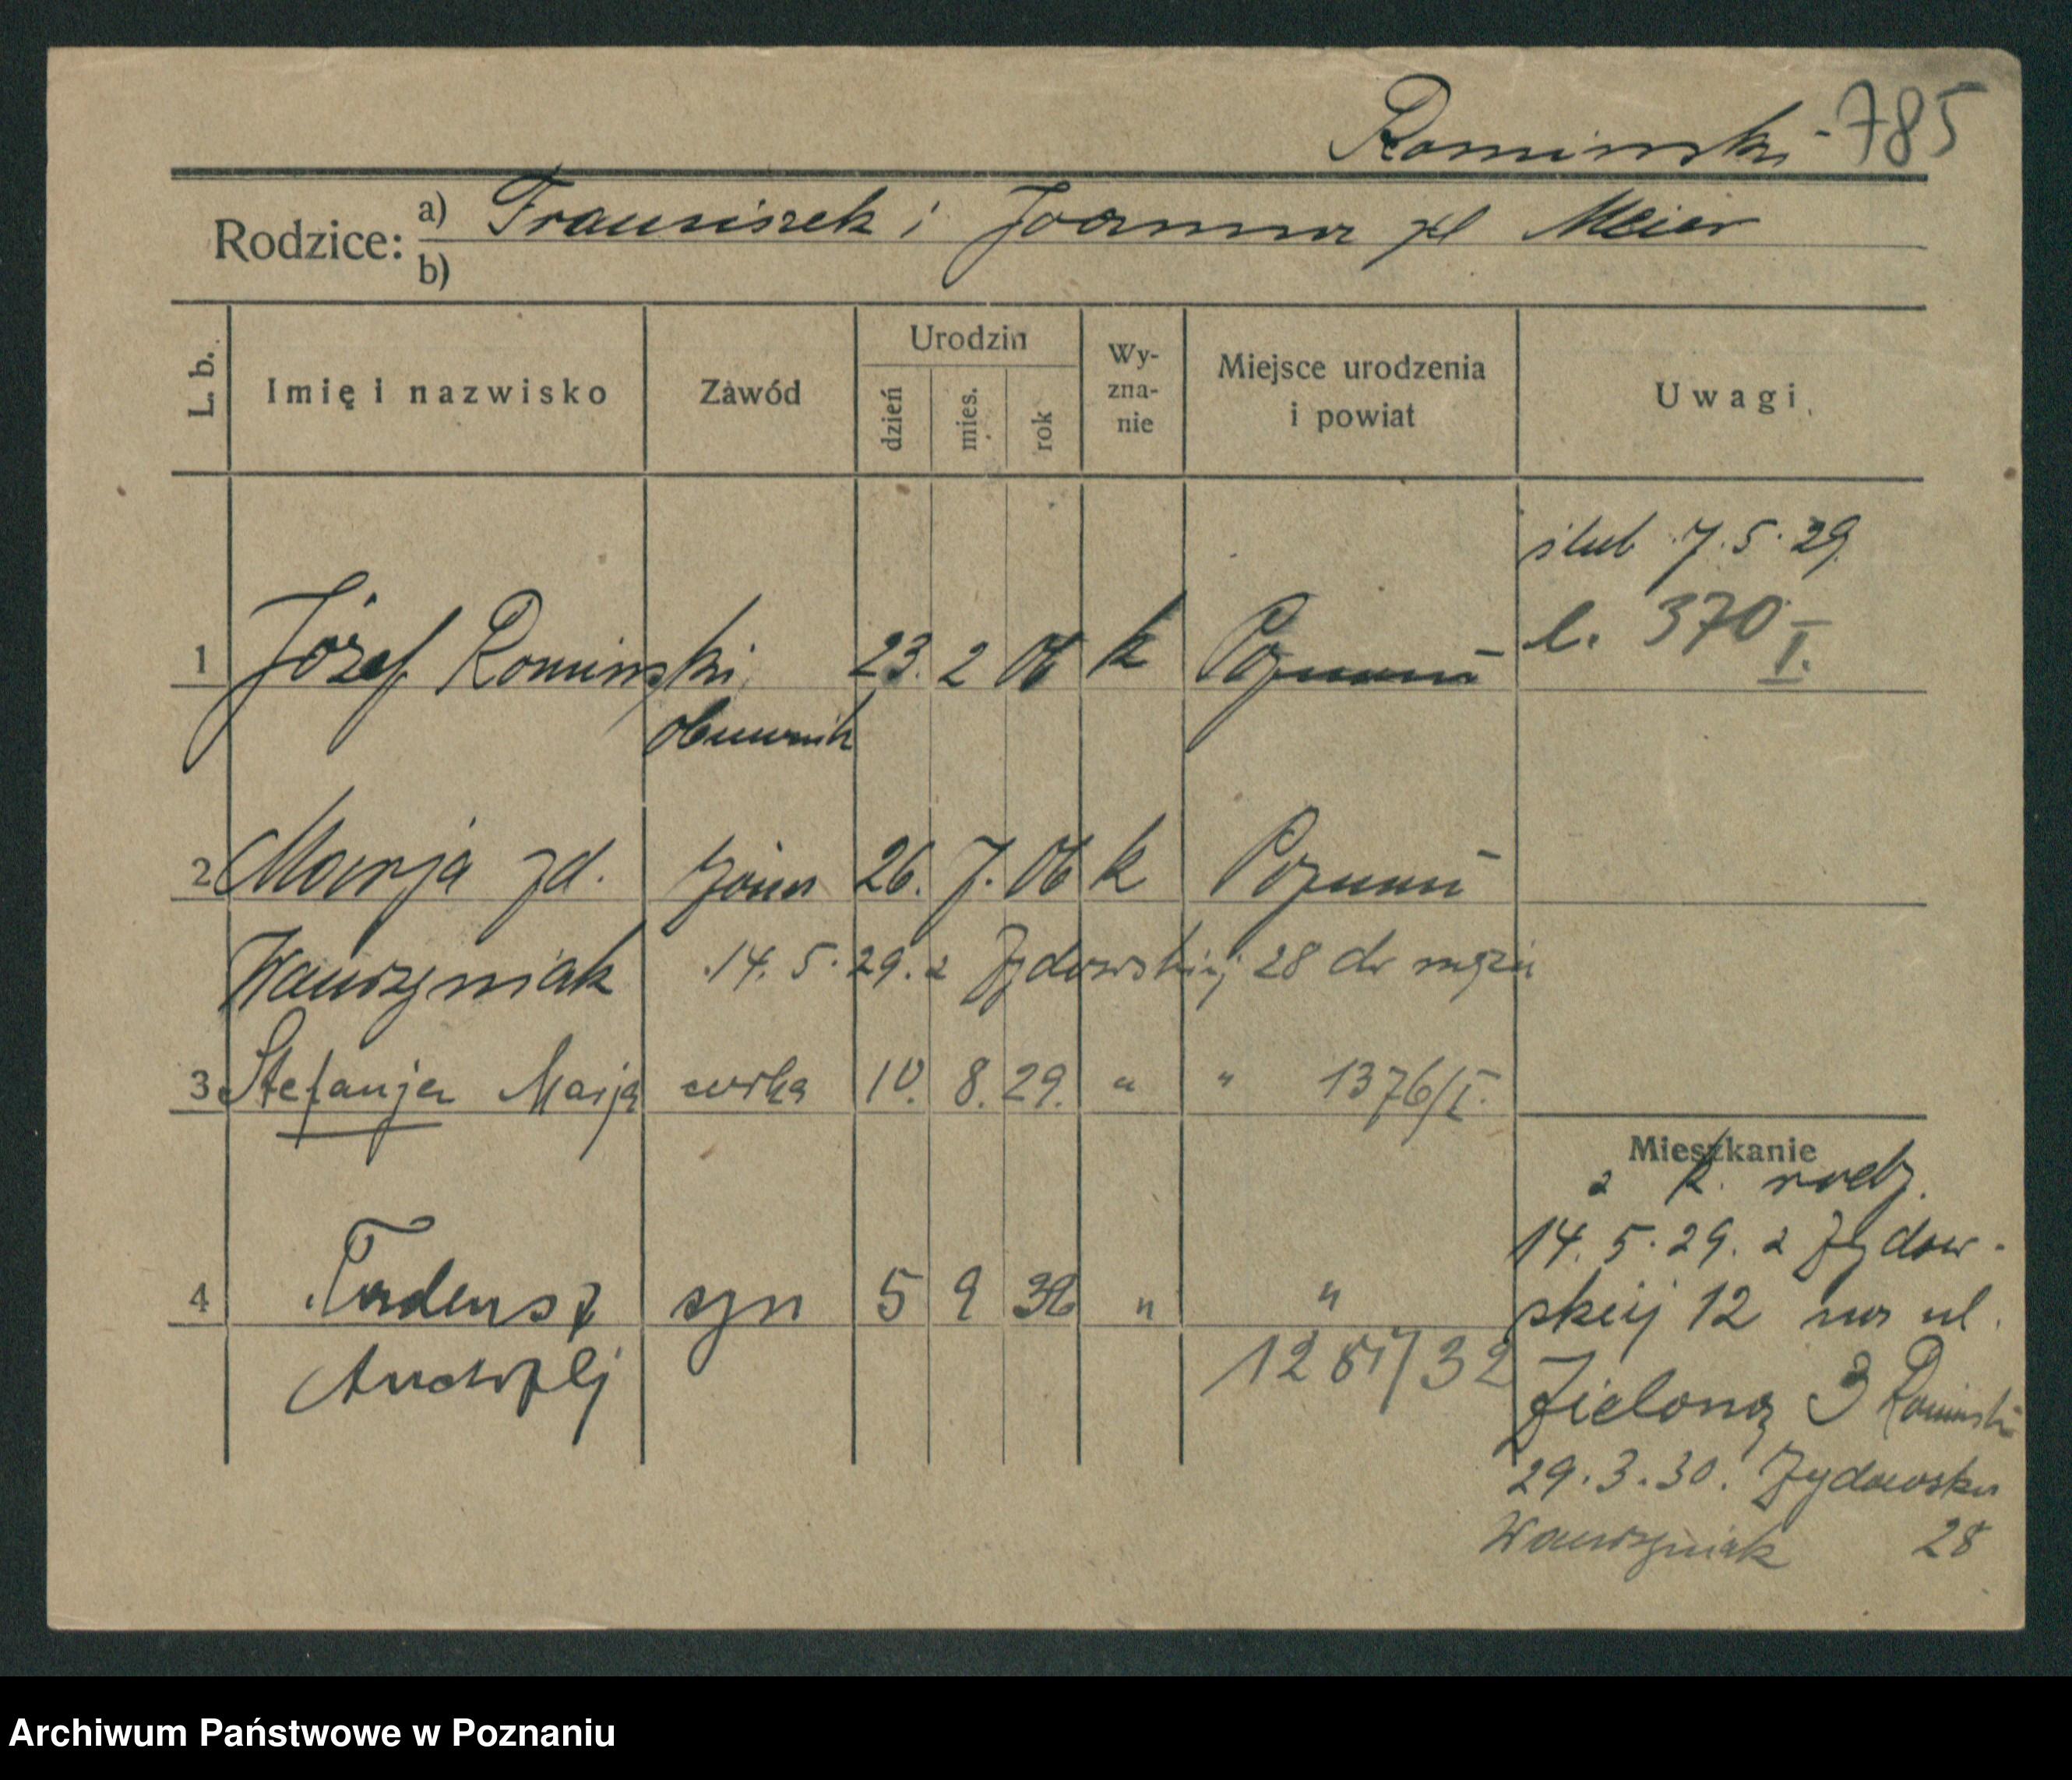 Rominski - 785
Rodzice: a) Franciszek i Joanna zd Meier
b)
L. b. Imię i nazwisko Zawód Urodzin dzień mies. rok Wy-zna-nie Miejsce urodzenia i powiat Uwagi
ślub 7.5.29
l. 370 I.
1 Józef Rominski 23. 2 06 k Poznań
obuwnik
2 Marja zd. żona 26. 7. 06 k Poznań
Wawrzyniak 14. 5. 29. z Żydowskiej 28 do męża
3 Stefanja Marja córka 10. 8. 29. " " 1376/I.
Mieszkanie
z k. rodz.
14. 5. 29. z Żydow-
4 Tadeusz syn 5 9 32 " "
skiej 12 na ul.
Andrzej 1281/32
Zieloną 3 Rominski
29.3.30. Żydowska
Wawrzyniak 28
Archiwum Państwowe w Poznaniu